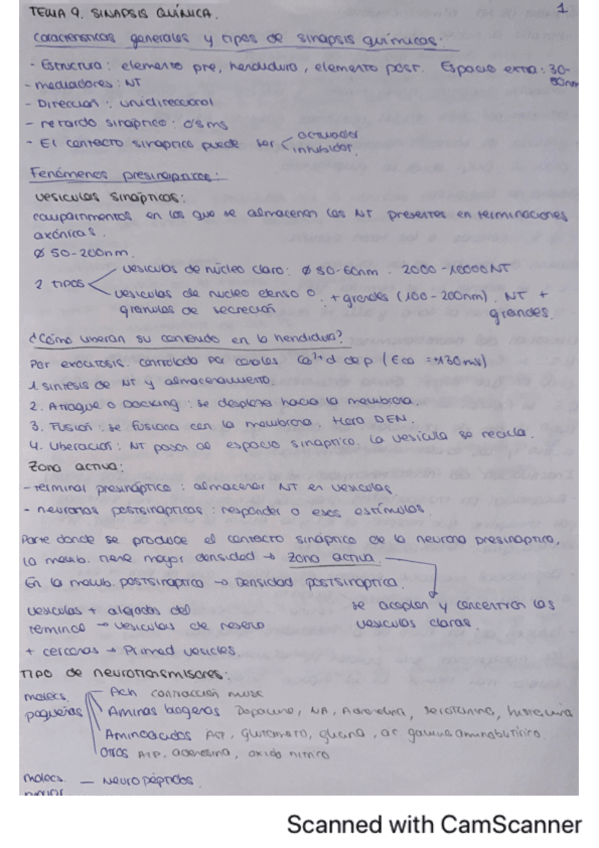 TEMA 9. SINAPSIS QUÍMICA.
1
Características generales y tipos de sinapsis químicas.
- Estructura: elemento pre, hendidura, elemento post. Espacio extra: 30-50nm
- mediadores: NT
- Dirección: unidireccional
- retardo sináptico: 0'5ms
- El contacto sináptico puede ser < activador
inhibidor.
Fenómenos presinápticos:
vesículas sinápticas:
compartimentos en los que se almacenan los NT presentes en terminaciones
axónicas.
Ø 50-200nm.
2 tipos < vesículas de núcleo claro: Ø 50-60nm. 2000-10000NT
vesículas de nucleo denso o + grandes (100-200nm). NT +
granulos de secreción grandes.
¿Cómo liberan su contenido en la hendidura?
Por exocitosis. controlado por canales Ca²⁺ d dep
1. síntesis de NT y almacenamiento.
2. Atraque o Docking: se desplaza hacia la membrana.
3. Fusión: se fusiona con la membrana. Hara DEN.
4. Liberación: NT pasan al espacio sináptico. La vesícula se recicla.
Zona activa:
- terminal presináptica: almacenar NT en vesículas
- neuronas postsinápticas: responder a esos estímulos.
Parte donde se produce el contacto sináptico de la neurona presináptica,
la memb. tiene mayor densidad → Zona activa.
En la memb. postsináptica → Densidad postsináptica.
vesículas + alejadas del
terminal → vesículas de reserva
se acoplan y concentran las
vesículas claras.
+ cercanas → Primed vesicles.
TIPO de neurotransmisores:
molecs. pequeñas
Ach contracción musc
Aminas biógenas Dopamina, NA, Adrenalina, serotonina, histamina
Aminoácidos Glutamato, glicina, ac gamma aminobutírico.
Otros ATP, adenosina, oxido nítrico
molecs. — Neuropéptidos.
Scanned with CamScanner